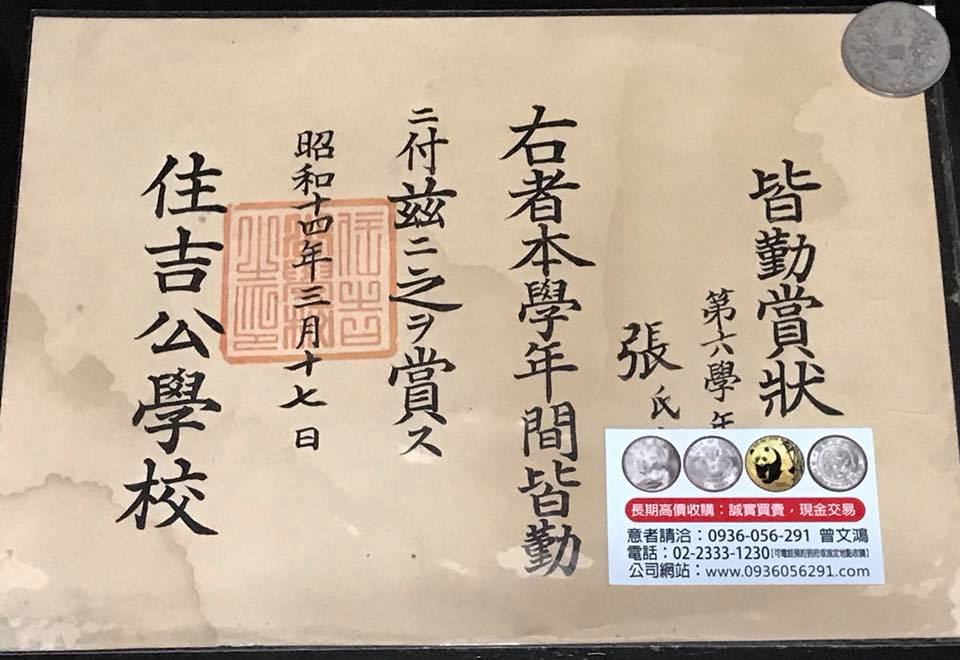 皆勤賞狀
第六學年
張氏
右者本學年間皆勤
ニ付茲ニ之ヲ賞ス
昭和十四年三月十七日
住吉公學校
長期高價收購：誠實買賣，現金交易
意者請洽：0936-056-291 曾文鴻
電話：02-2333-1230【可電話預約到府或指定地點收購】
公司網站：www.0936056291.com